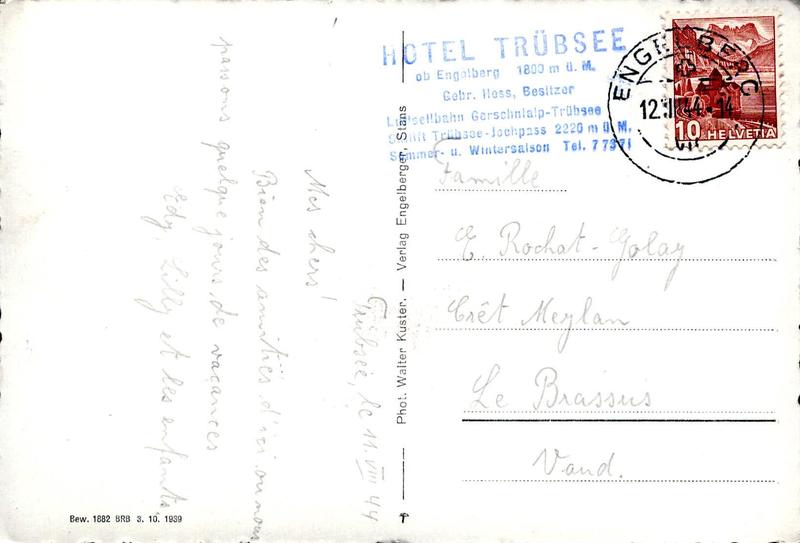 Trübsee, le 11. VIII 44
Mes chers!
Bien des amitiés d'ici ou nous
passons quelque jours de vacances
Edy, Lilly et les enfants.
Bew. 1882 BRB 3. 10. 1939
Phot. Walter Kuster. — Verlag Engelberger, Stans
HOTEL TRÜBSEE
ob Engelberg 1800 m ü. M.
Gebr. Hess, Besitzer
Luftseilbahn Gerschnialp-Trübsee
Skilift Trübsee-Jochpass 2220 m ü. M.
Sommer- u. Wintersaison Tel. 7 73 71
ENGELBERG
12. VIII 44 - 14
10 HELVETIA
Famille
E. Rochat-Golay
Crêt Meylan
Le Brassus
Vaud.